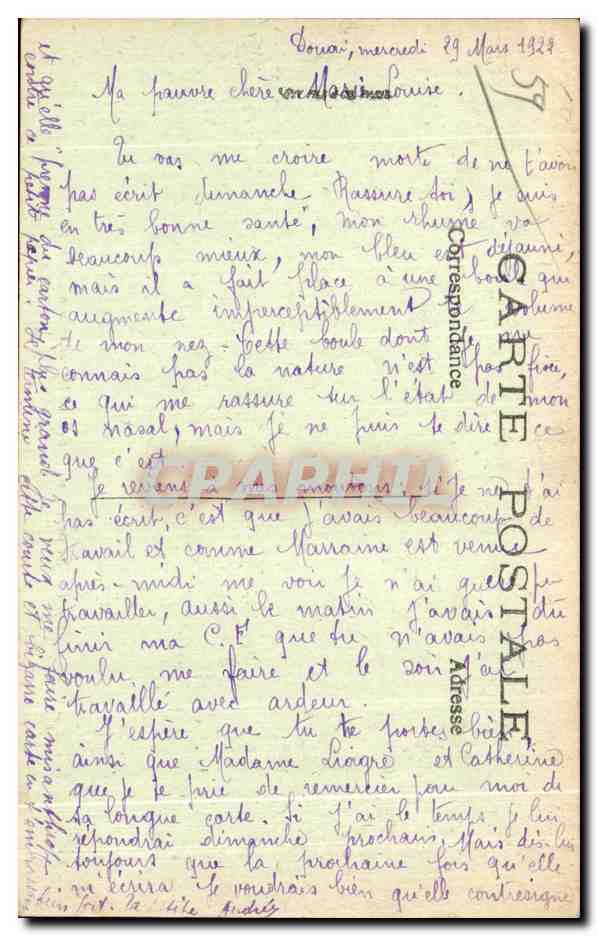 Douai, mercredi 29 Mars 1922
59
Ma pauvre chère Marie Louise.
Tu vas me croire morte de ne t'avoir
pas écrit dimanche. Rassure toi, je suis
en très bonne santé, mon rhume va
beaucoup mieux, mon bleu est déjauni,
mais il a fait place à une boule qui
augmente imperceptiblement le volume
de mon nez. Cette boule dont je ne
connais pas la nature n'est pas fixe,
ce qui me rassure sur l'état de mon
os nasal, mais je ne puis te dire ce
que c'est.
Je reviens à nos moutons. Si je ne t'ai
pas écrit, c'est que j'avais beaucoup de
travail et comme Marraine est venue
après-midi me voir je n'ai guère pu
travailler, aussi le matin j'avais dû
finir ma C. F que tu n'avais pas
voulu me faire et le soir j'ai
travaillé avec ardeur.
J'espère que tu te portes bien,
ainsi que Madame Liagre et Catherine
que je te prie de remercier pour moi de
sa longue carte. Si j'ai le temps je lui
répondrai dimanche prochain. Mais dis-lui
toujours que la prochaine fois qu'elle
m'écrira je voudrais bien qu'elle contresigne
et qu'elle prenne du carton plus grand je veux me faire
contre ce petit papier. Je termine cette courte et carte en t'embrassant
bien fort. Ta Andrée
CARTE POSTALE
Correspondance
Adresse
CPAPHIL